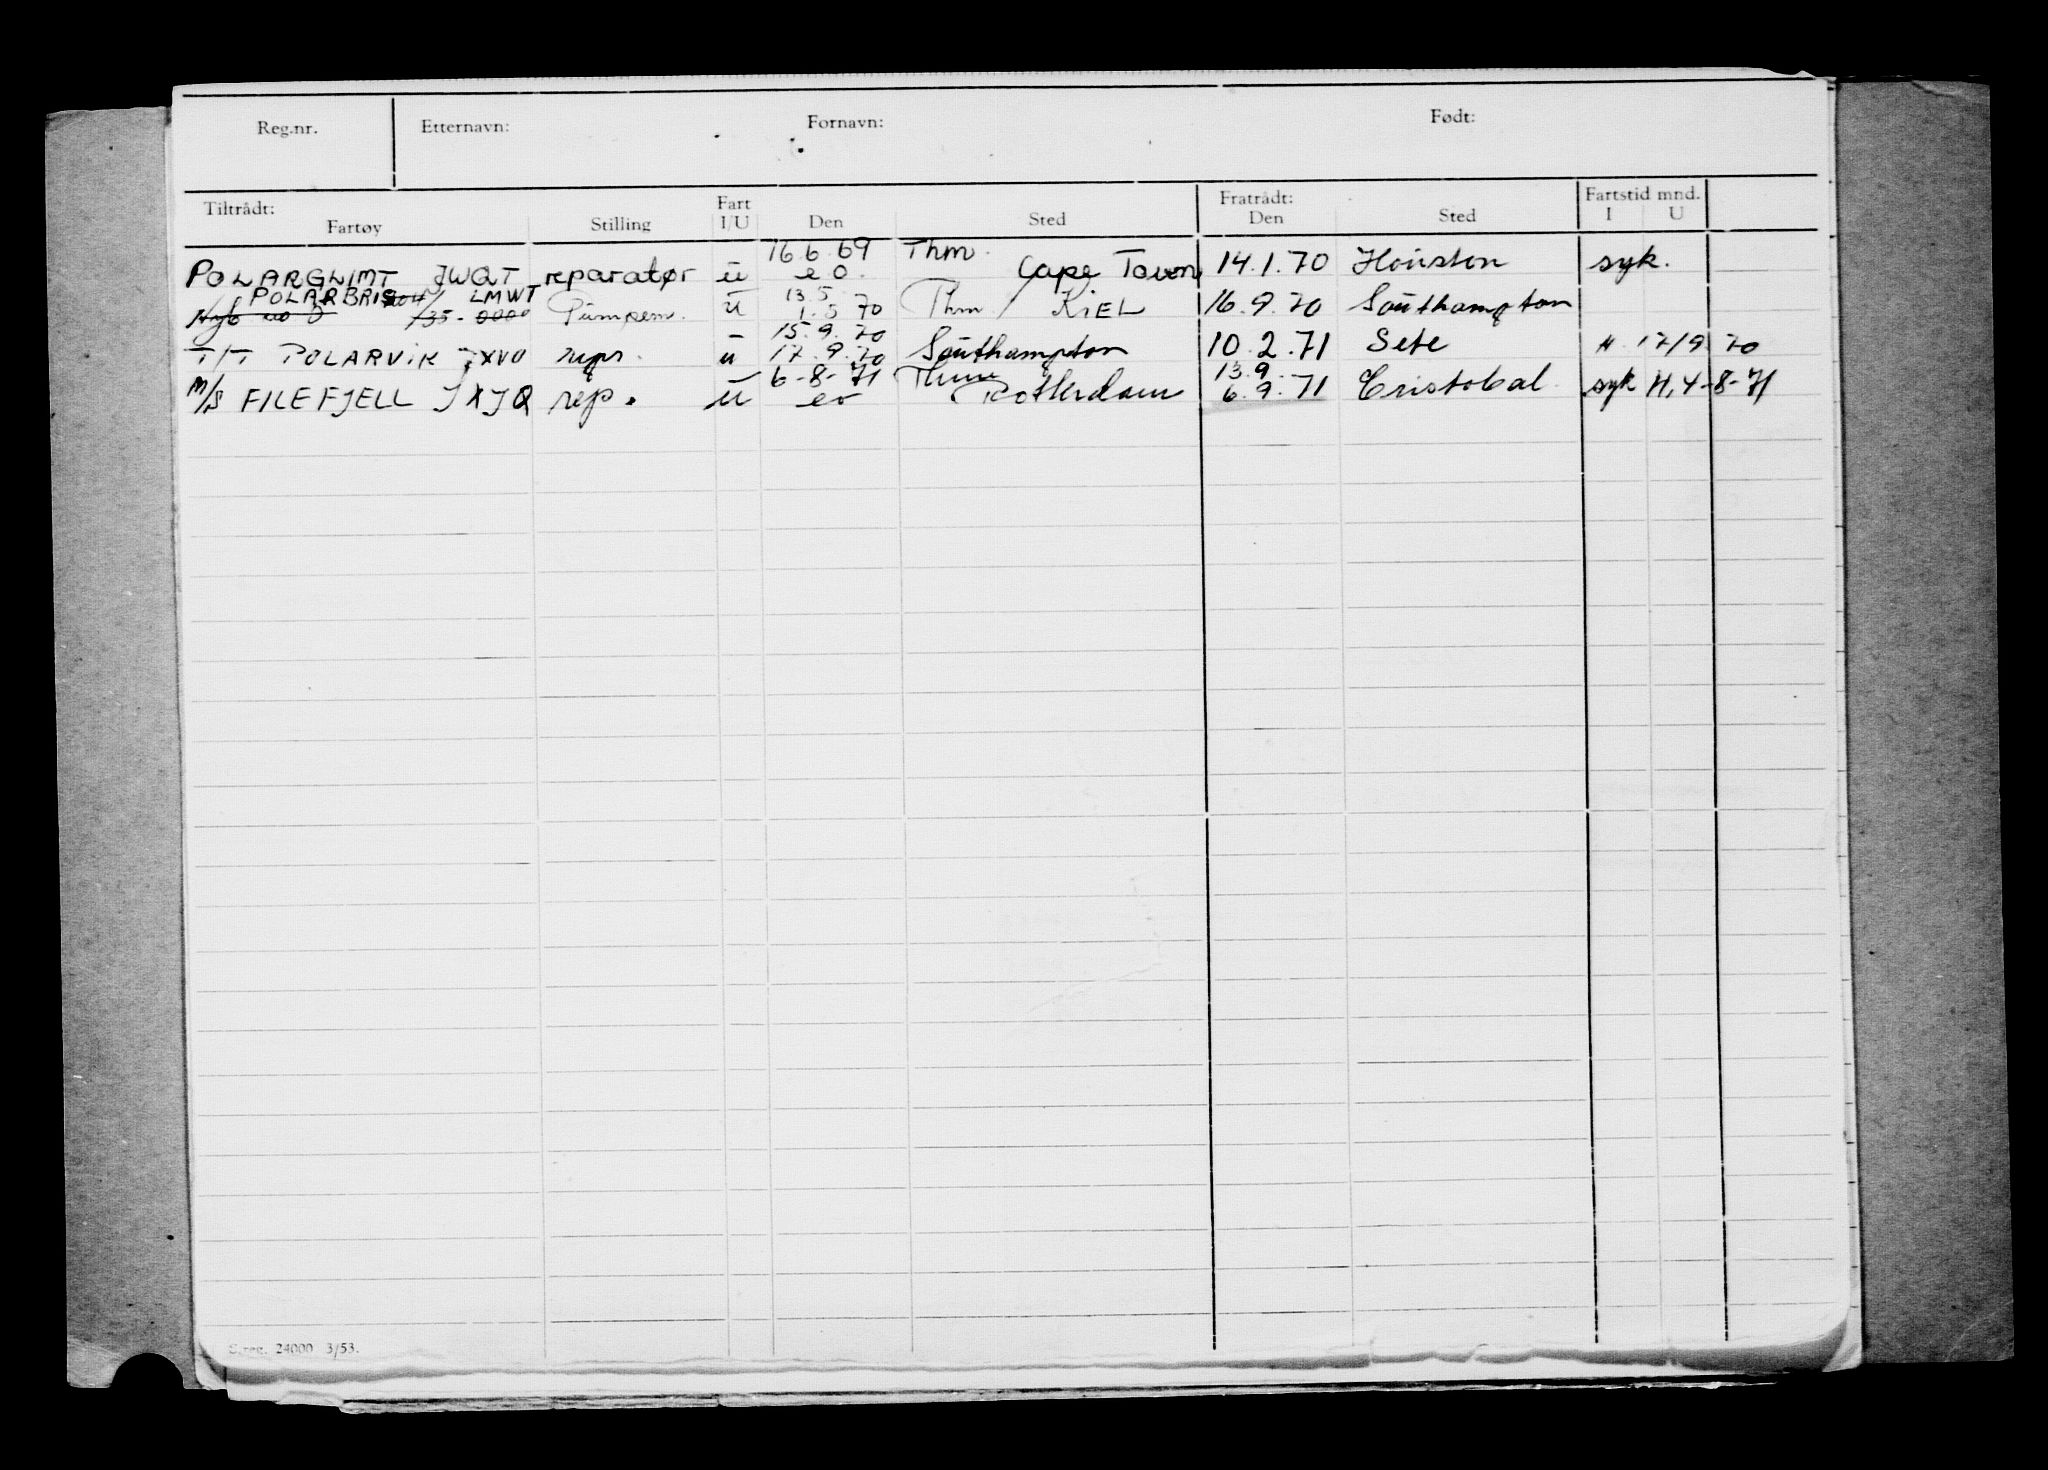 Reg.nr. Etternavn: Fornavn: Født:
Tiltrådt: Fart Fratrådt: Fartstid mnd.
Fartøy Stilling I/U Den Sted Den Sted I U
16.6.69 Thm.
POLARGLIMT JWQT reparatør u e o. Cape Town 14.1.70 Houston syk.
POLARBRIS LMWT 13.5.
Nyb 735-0000 Pumpem. u 1.5 70 Thm / KIEL 16.9.70 Southampton
15.9.70
T/T POLARVIK JXVO repr. u 17.9.70 Southampton 10.2.71 Sete H. 17/9 70
6-8-71 Thm 13.9.
M/S FILEFJELL JXJQ rep. u eo Rotterdam 6.9.71 Cristobal syk H, 4-8-71
S.reg. 24000 3/53.